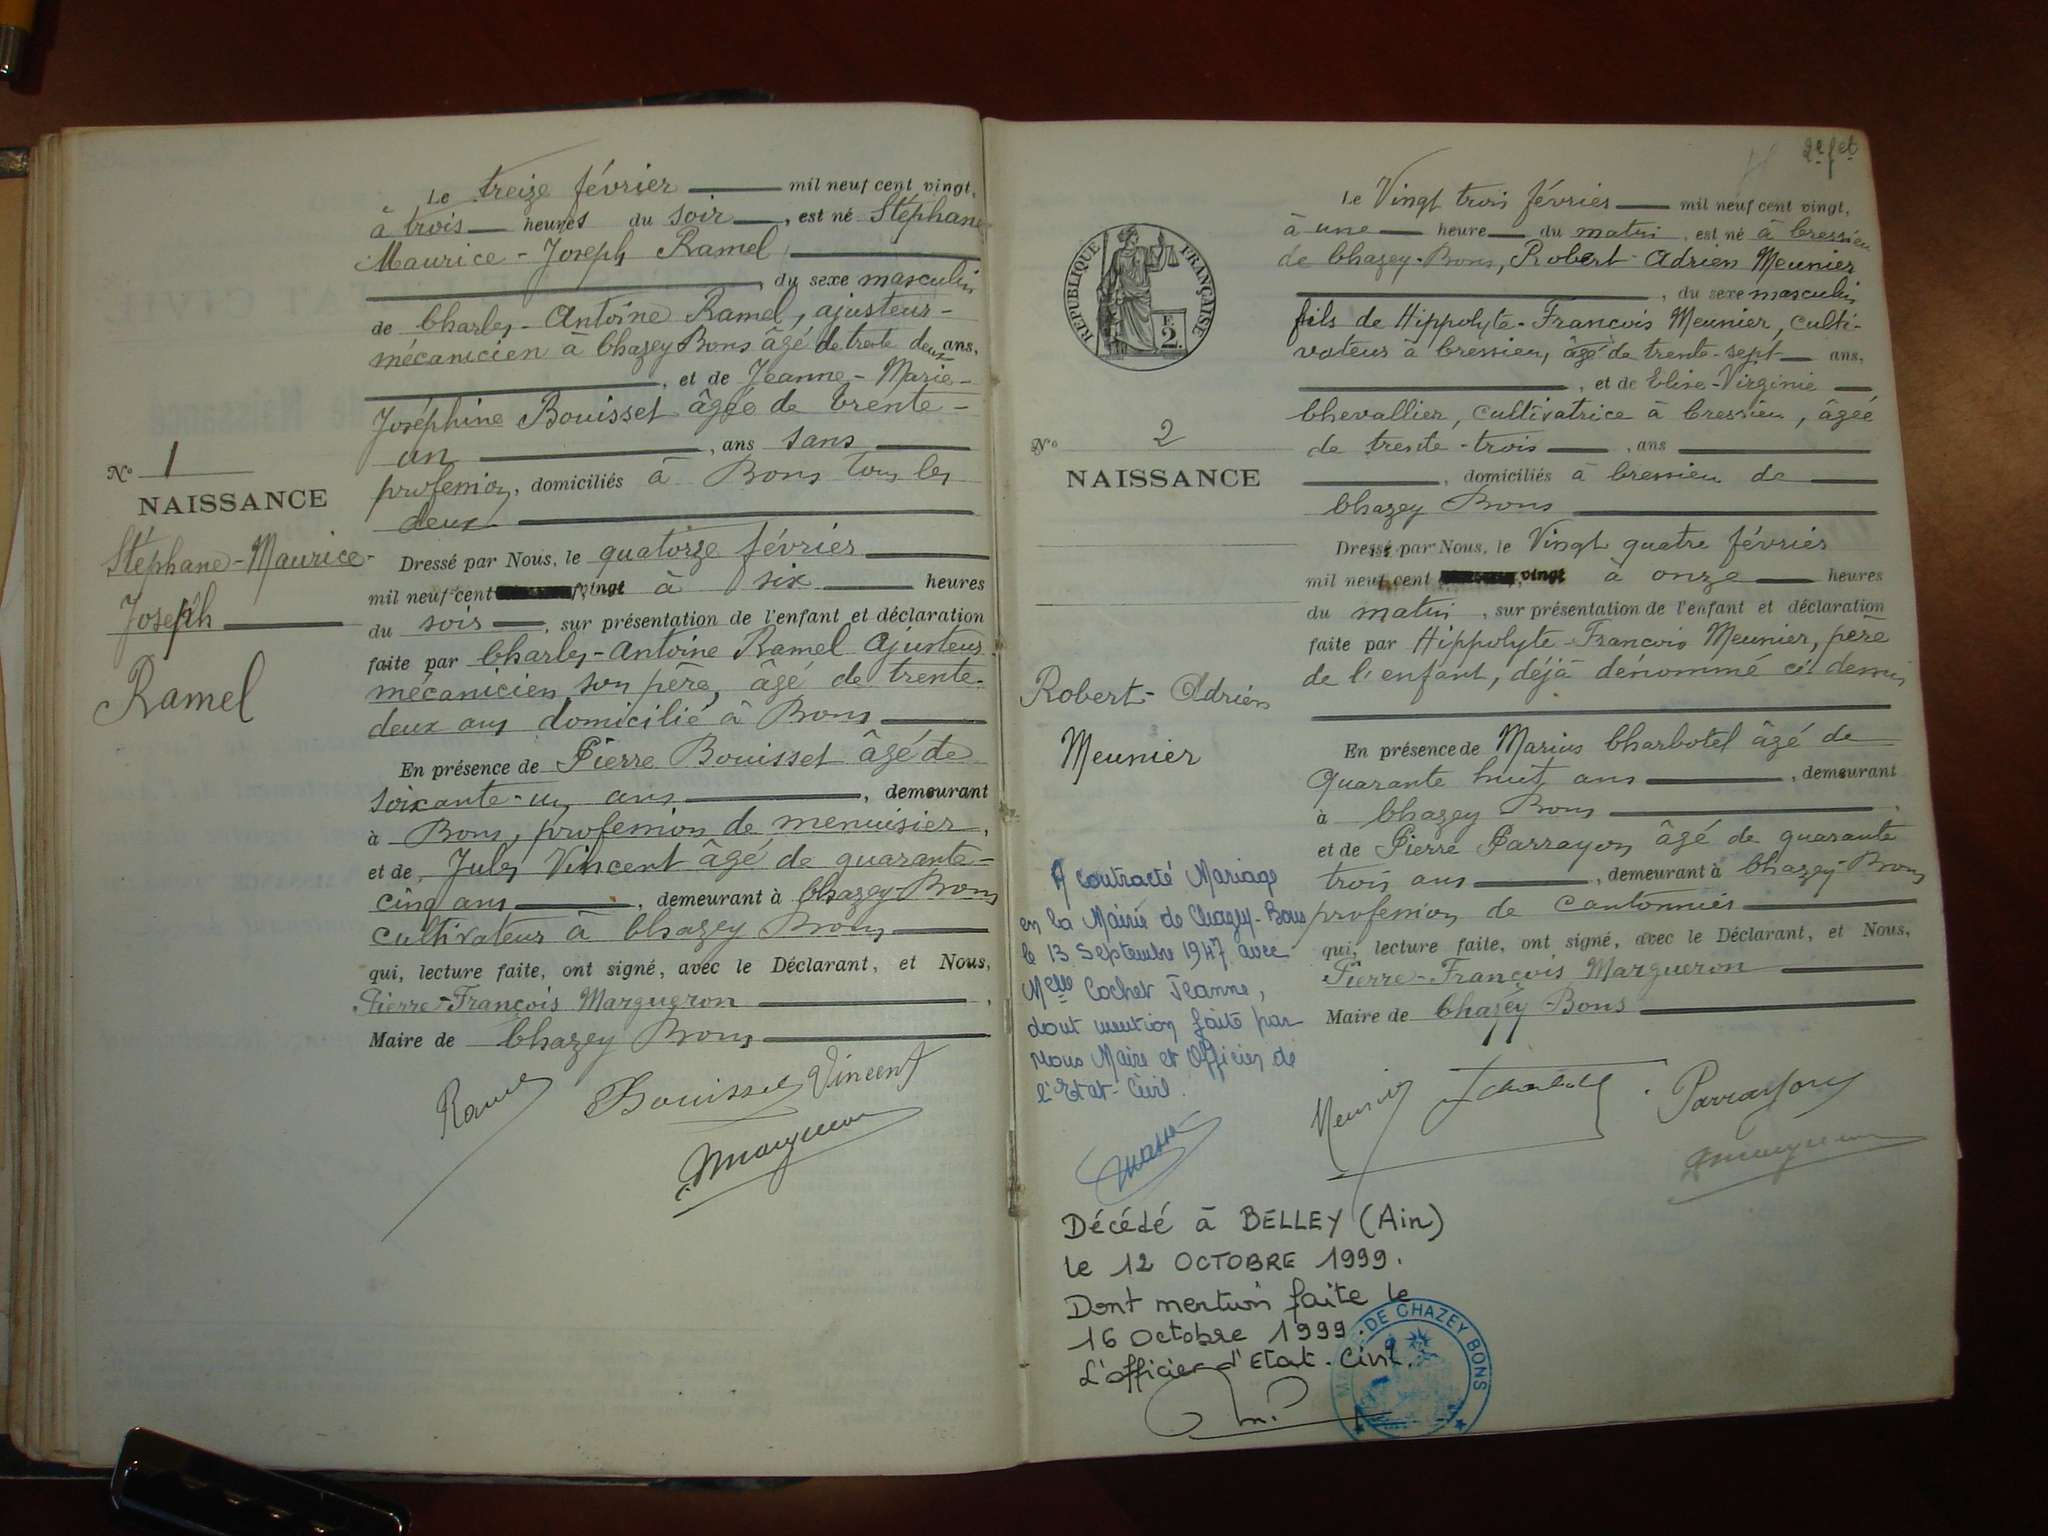 Le treize février mil neuf cent vingt,
à trois heures du soir, est né Stéphane
Maurice-Joseph Ramel
, du sexe masculin
de Charles-Antoine Ramel, ajusteur-
mécanicien à Chazey Bons âgé de trente deux ans,
, et de Jeanne-Marie-
Joséphine Bouisset âgée de trente-
un, ans sans
profession, domiciliés à Bons tous les
deux
Nº 1
NAISSANCE
Stéphane-Maurice-
Joseph
Ramel
Dressé par Nous, le quatorze février
mil neuf cent vingt à six heures
du soir, sur présentation de l'enfant et déclaration
faite par Charles-Antoine Ramel Ajusteur
mécanicien son père, âgé de trente-
deux ans domicilié à Bons
En présence de Pierre Bouisset âgé de
soixante-un ans, demeurant
à Bons, profession de menuisier,
et de Jules Vincent âgé de quarante-
cinq ans, demeurant à Chazey-Bons
cultivateur à Chazey Bons
qui, lecture faite, ont signé, avec le Déclarant, et Nous,
Pierre-François Margueron,
Maire de Chazey Bons
Ramel Bouisset Vincent
Margueron
2e fet
Le Vingt trois février mil neuf cent vingt,
à une heure du matin, est né à Cressieu
de Chazey-Bons, Robert-Adrien Meunier
, du sexe masculin
fils de Hippolyte-François Meunier, culti-
vateur à Cressieu, âgé de trente-sept ans,
, et de Elise-Virginie
Chevallier, cultivatrice à Cressieu, âgée
de trente-trois, ans
, domiciliés à Cressieu de
Chazey Bons
RÉPUBLIQUE FRANÇAISE
E.
2.
Nº 2
NAISSANCE
Robert-Adrien
Meunier
Dressé par Nous, le Vingt quatre février
mil neuf cent vingt à onze heures
du matin, sur présentation de l'enfant et déclaration
faite par Hippolyte-François Meunier, père
de l'enfant, déjà dénommé ci dessus
En présence de Marius Charbotel âgé de
quarante huit ans, demeurant
à Chazey Bons,
et de Pierre Parrayon âgé de quarante
trois ans, demeurant à Chazey-Bons
profession de cantonnier
qui, lecture faite, ont signé, avec le Déclarant, et Nous,
Pierre-François Margueron
Maire de Chazey Bons
Meunier Parrayon
Margueron
A contracté Mariage
en la Mairie de Chazey-Bons
le 13 Septembre 1947 avec
Melle Cochet Jeanne,
dont mention faite par
Nous Maire et Officier de
l'Etat-Civil.
Décédé à BELLEY (Ain)
le 12 OCTOBRE 1999.
Dont mention faite le
16 Octobre 1999.
L'officier d'Etat-Civil.
MAIRIE DE CHAZEY BONS